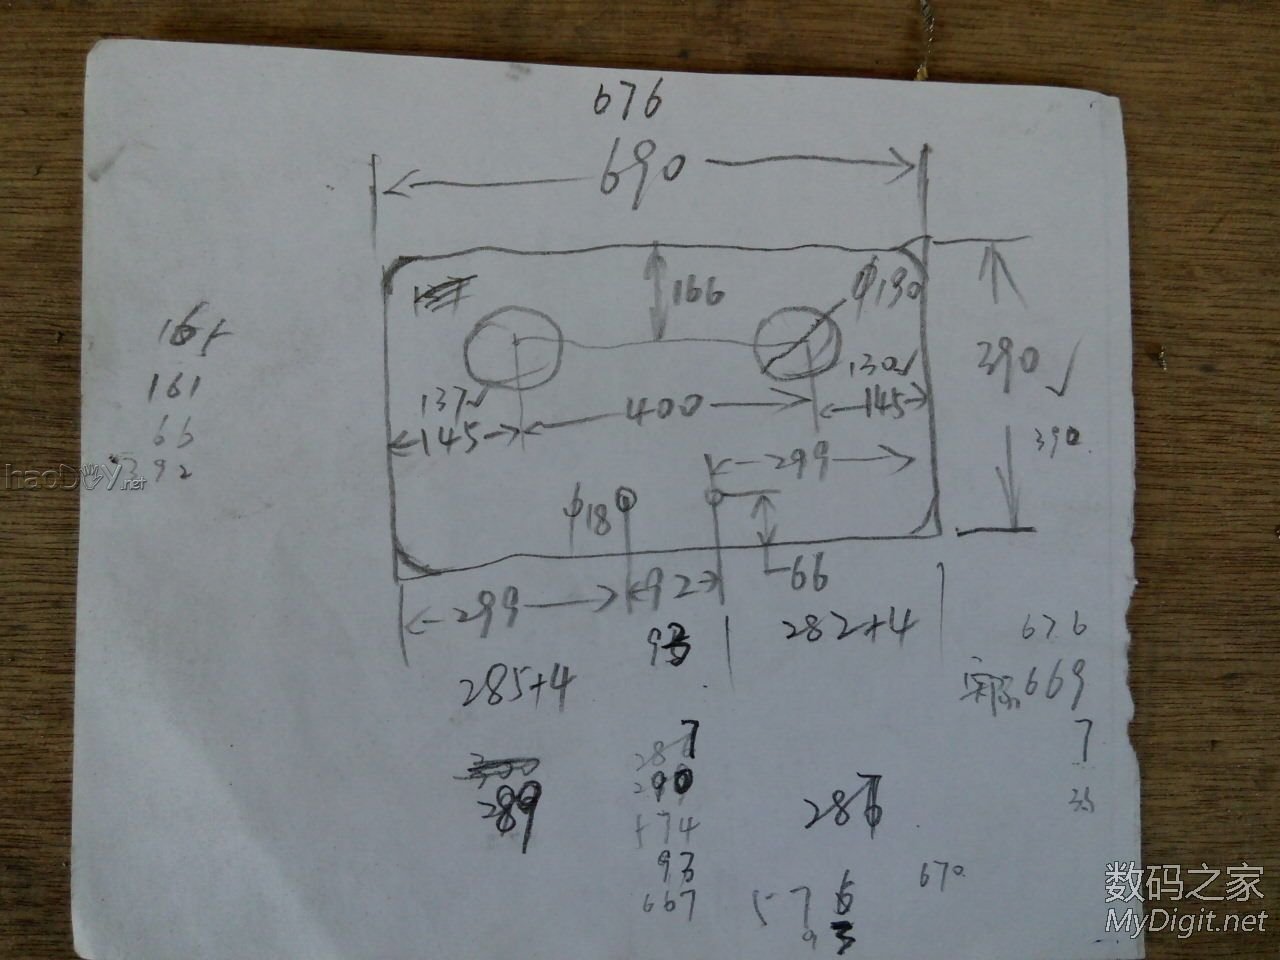 676
690
166
φ190
161
66
392
137√
130√
145
400
145
390√
390
299
φ18
66
299
92
282+4
93
285+4
676
实际669
7
35
287
290
+74
93
667
289
286
670
576
93
haoDIY.net
数码之家
MyDigit.net